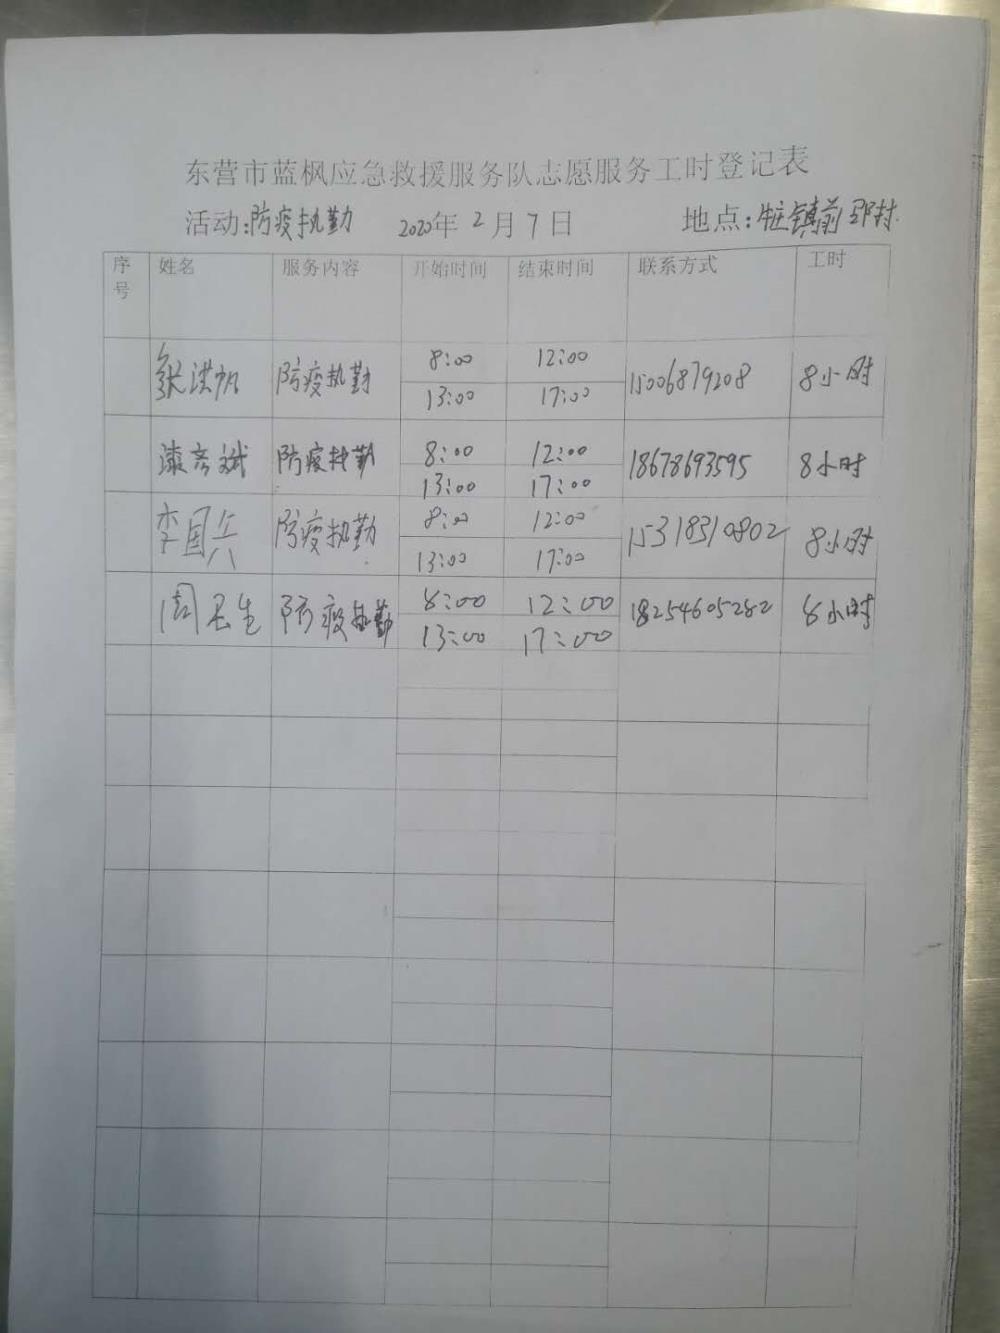 东营市蓝枫应急救援服务队志愿服务工时登记表
活动:防疫执勤 2020年2月7日 地点:牛庄镇前邵村
序号 姓名 服务内容 开始时间 结束时间 联系方式 工时
张洪帆 防疫执勤 8:00 12:00 15006879208 8小时
13:00 17:00
彦斌 防疫执勤 8:00 12:00 18678693595 8小时
13:00 17:00
李国兵 防疫执勤 8:00 12:00 15318310802 8小时
13:00 17:00
周卫生 防疫执勤 8:00 12:00 18254605282 8小时
13:00 17:00